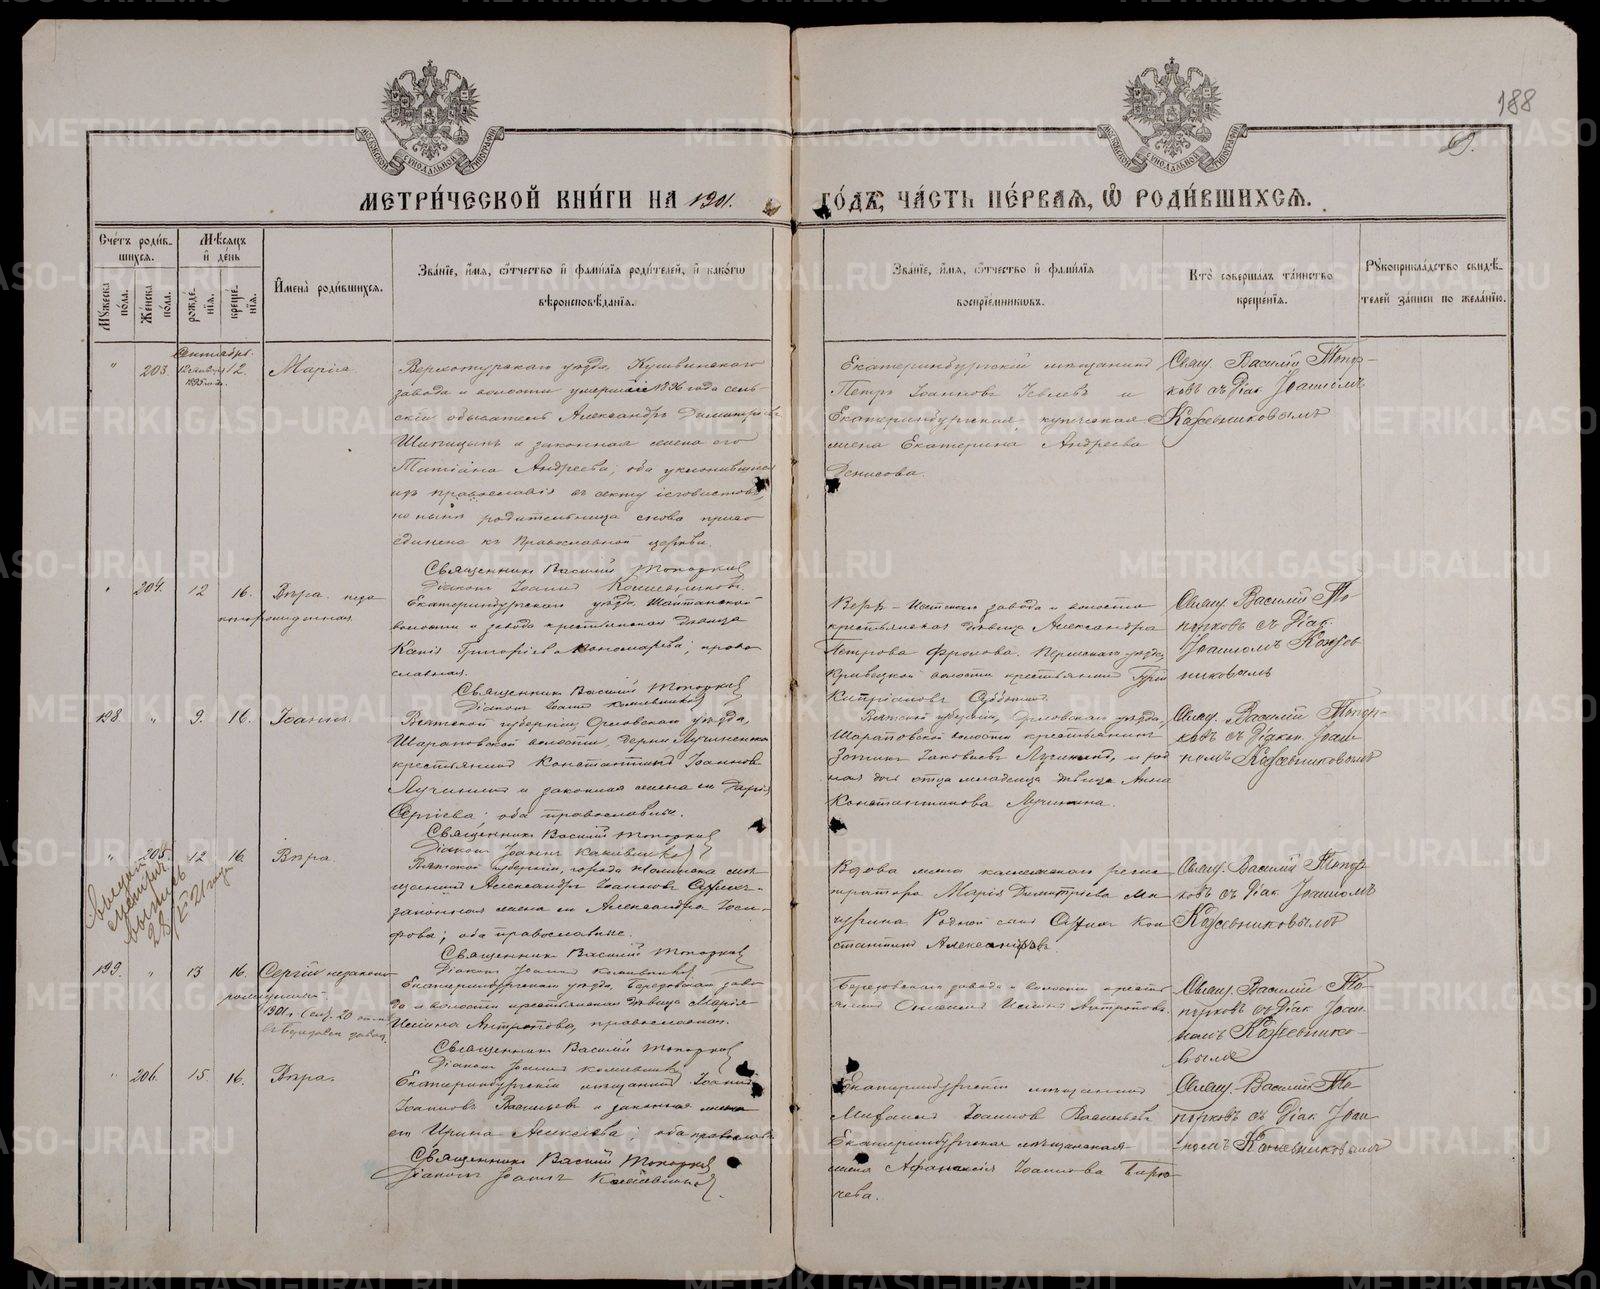 188
69.
МОСКОВСКОЙ СѴНОДАЛЬНОЙ ТИПОГРАФІИ
МОСКОВСКОЙ СѴНОДАЛЬНОЙ ТИПОГРАФІИ
МЕТРИ́ЧЕСКОЙ КНИ́ГИ НА 1901. ГО́ДЪ, ЧА́СТЬ ПЕ́РВАЯ, Ѡ РОДИ́ВШИХСЯ.
Сче́тъ роди́вшихся.
Мꙋжеска по́ла.
Же́нска по́ла.
Мѣ́сѧцъ и҆ де́нь
рожде́нїѧ.
креще́нїѧ.
И҆мена̀ роди́вшихсѧ.
Зва́нїе, и҆́мѧ, ѻ҆́тчество и҆ фамилїѧ роди́телей, и҆ како́гѡ
вѣроисповѣ́данїѧ.
Зва́нїе, и҆́мѧ, ѻ҆́тчество и҆ фами́лїѧ
воспрїе́мникѡвъ.
Кто̀ соверша́лъ та́инство
креще́нїѧ.
Рꙋкоприкла́дство свидѣ́телей за́писи по жела́нїю.
Сентябрь.
" 203. 12. Марія.
Верхотурскаго уѣзда, Кушвинскаго
завода и волости умершій 1896 года сель-
скій обыватель Александръ Димитріевъ
Шипицынъ и законная жена его
Татіана Андреева; оба уклонившіеся
изъ православія въ секту іеговистовъ,
но нынѣ родительница снова присо-
единена къ Православной церкви.
Священникъ Василій Топорковъ
Діаконъ Іоаннъ Кожевниковъ
Екатеринбургскій мѣщанинъ
Петръ Іоанновъ Іевлевъ и
Екатеринбургская купеческая
жена Екатерина Андреева
Денисова.
Свящ. Василій Топор-
ковъ съ Діак. Іоанномъ
Кожевниковымъ
" 204. 12 16. Вѣра. неза-
коннорожденная
Екатеринбургскаго уѣзда, Шайтанской
волости и завода крестьянская дѣвица
Григорьева Пономарева; право-
славная.
Священникъ Василій Топорковъ
Діаконъ Іоаннъ Кожевниковъ
Верхъ-Исетскаго завода и волости
крестьянская дѣвица Александра
Петрова Фролова. Пермскаго уѣзда,
волости крестьянинъ
Кипріановъ Субботинъ.
Свящ. Василій То-
порковъ съ Діак.
Іоанномъ Кожев-
никовымъ
198. " 9. 16. Іоаннъ.
Вятской губерніи, Орловскаго уѣзда,
Шараповской волости, дерни Лучиненки
крестьянинъ Константинъ Іоанновъ
Лучининъ и законная жена его Дарія
Сергіева; оба православные.
Священникъ Василій Топорковъ
Діаконъ Іоаннъ Кожевниковъ
Вятской губерніи, Орловскаго уѣзда,
Шараповской волости крестьянинъ
Зотикъ Іаковлевъ Лучининъ, и род-
ная дочь отца младенца дѣвица Анна
Константинова Лучинина.
Свящ. Василій Топор-
ковъ съ Діакон. Іоан-
номъ Кожевниковымъ
" 205. 12 16. Вѣра.
Вятской губерніи, города Нолинска мѣ-
щанинъ Александръ Іоанновъ
законная жена его Александра Іоси-
фова; оба православные.
Священникъ Василій Топорковъ
Діаконъ Іоаннъ Кожевниковъ
Вдова жена коллежскаго регис-
тратора Марія Димитріева
Родной сынъ Кон-
стантинъ Александровъ
Свящ. Василій Топор-
ковъ съ Діак. Іоанномъ
Кожевниковымъ
199. " 13 16. Сергій незаконно-
рожденный.
Екатеринбургскаго уѣзда, Березовскаго заво-
да и волости крестьянская дѣвица Марія
Исаина Антропова, православная.
Священникъ Василій Топорковъ
Діаконъ Іоаннъ Кожевниковъ
Березовскаго завода и волости кресть-
янинъ Антроповъ
Свящ. Василій То-
порковъ съ Діак. Іоан-
номъ Кожевнико-
вымъ
" 206. 15. 16. Вѣра.
Екатеринбургскій мѣщанинъ Іоаннъ
Іоанновъ Васильевъ и законная жена
его Ирина Алексіева; оба православные
Священникъ Василій Топорковъ
Діаконъ Іоаннъ Кожевниковъ.
Екатеринбургскій мѣщанинъ
Михаилъ Іоанновъ Васильевъ
Екатеринбургская мѣщанская
жена Афанасія Іоаннова Бирю-
чева.
Свящ. Василій То-
порковъ съ Діак. Іоан-
номъ Кожевниковымъ
METRIKI.GASO-URAL.RU